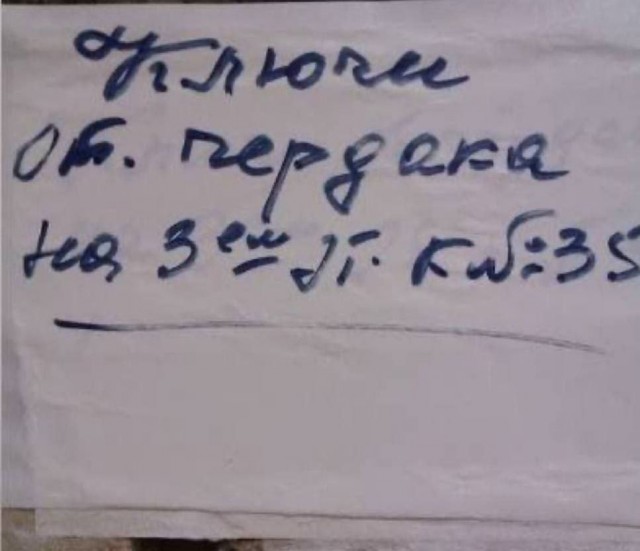 Ключи
от. чердака
на 3ем эт. кв: 35